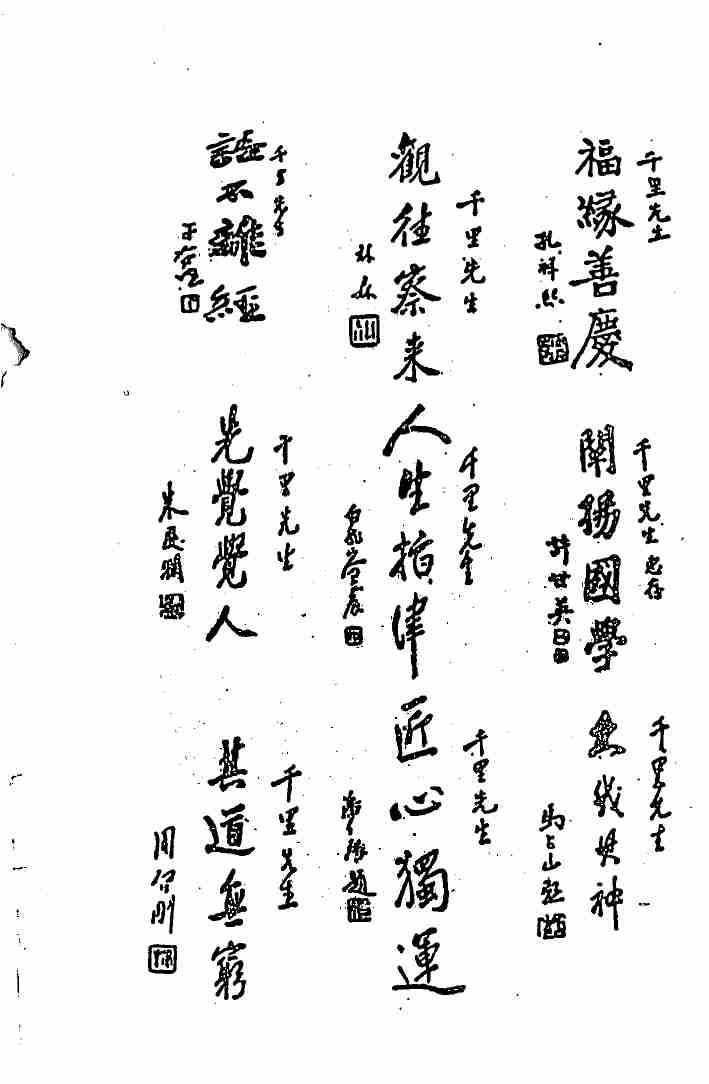 千里先生
福緣善慶
孔祥熙
千里先生惠存
闡揚國學
許世英
千里先生
神
馬占山題
千里先生
觀往察来
林森
千里先生
人生指津
白崇禧
千里先生
匠心獨運
題
千里先生
語不離經
于右任
千里先生
先覺覺人
千里先生
其道無窮